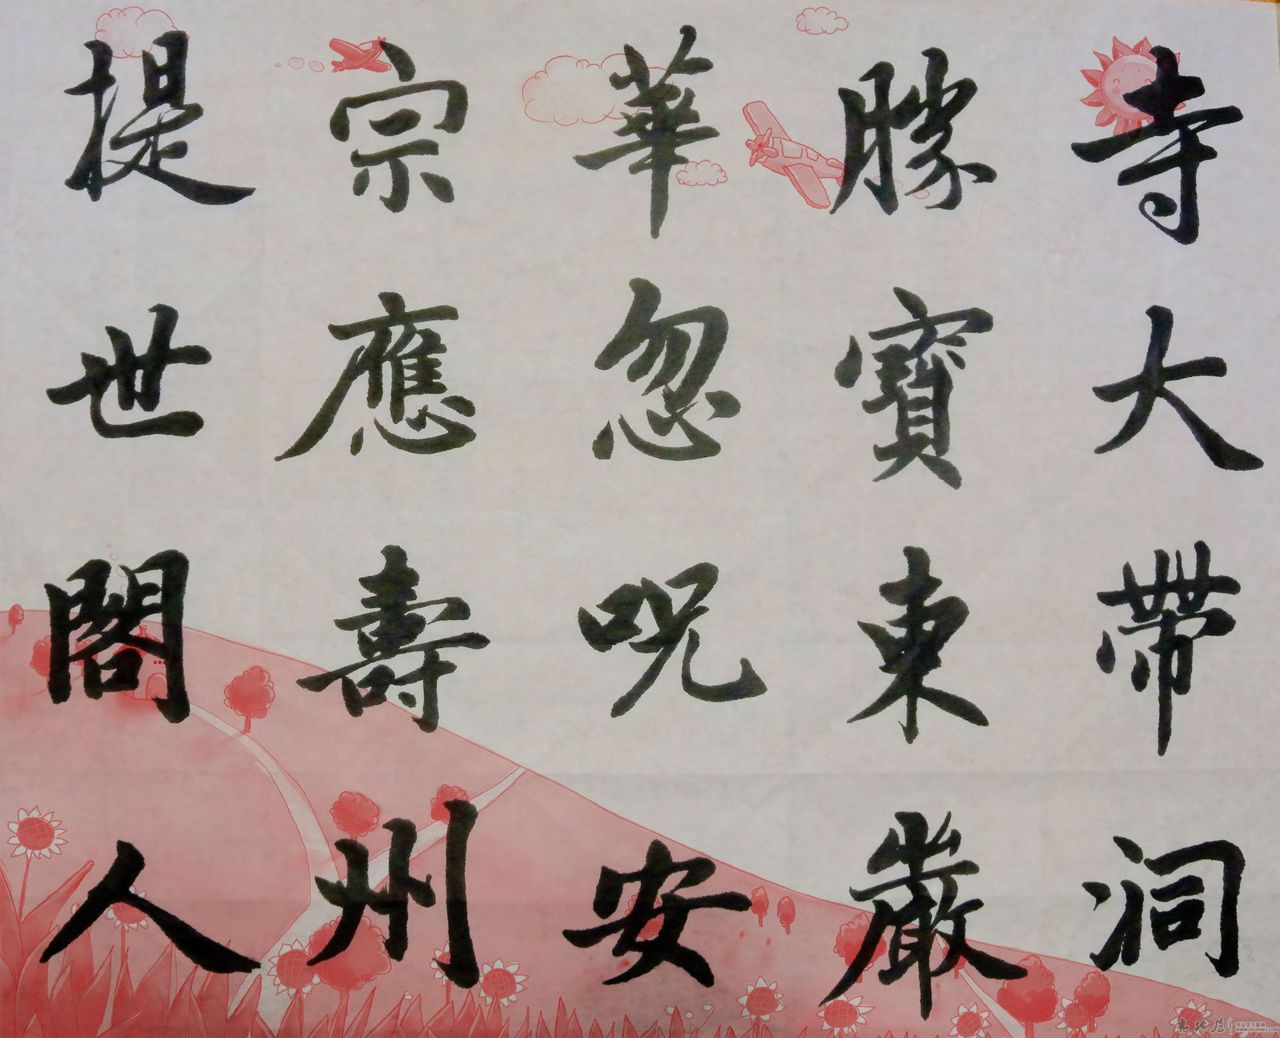 寺大帶洞
勝寶東嚴
華忽呪安
宗應壽州
提世閣人